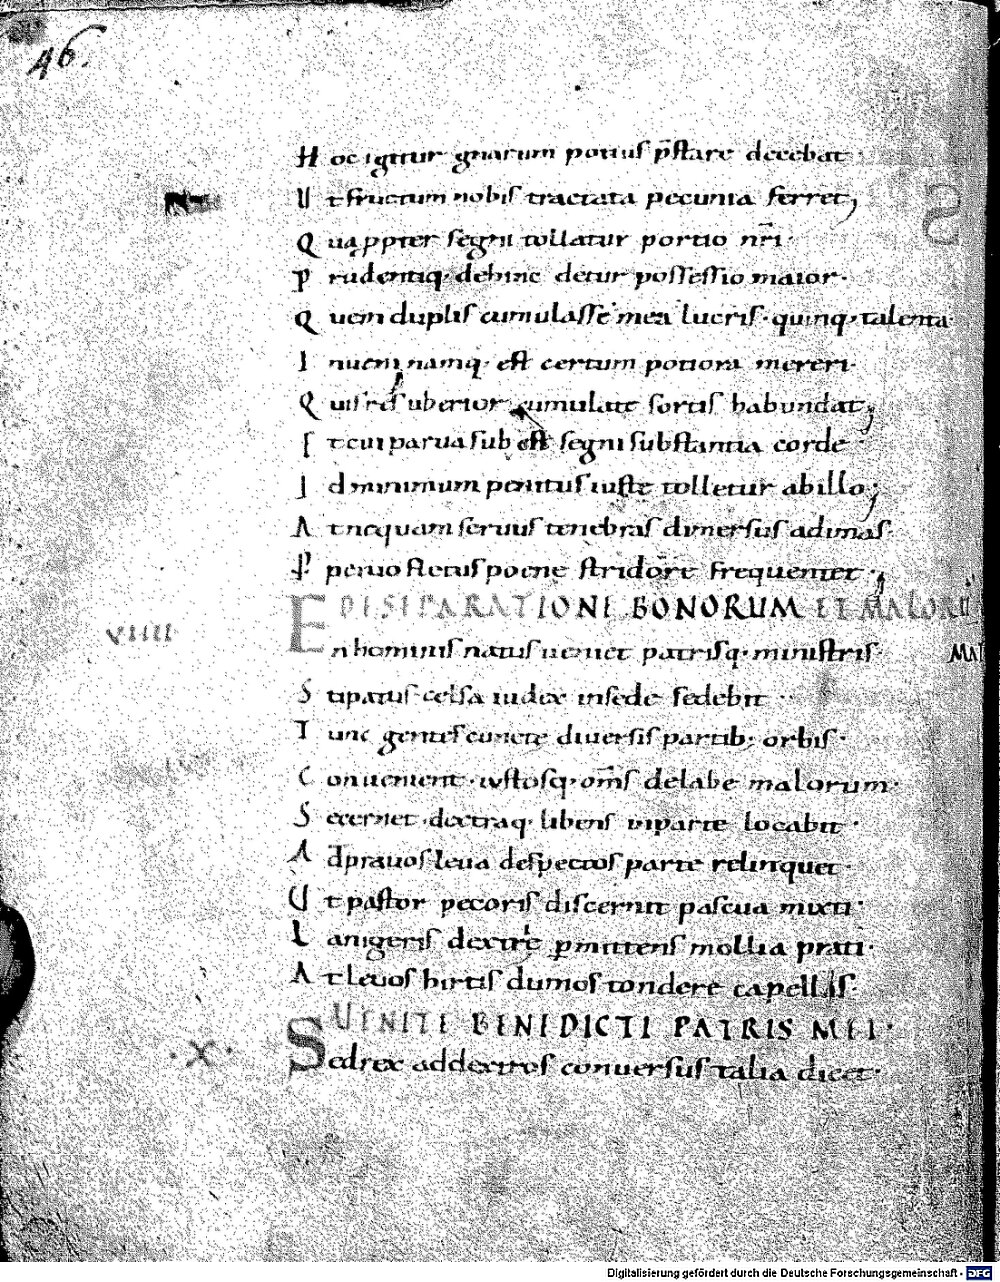 46.
H oc igitur gnarum potius p̄stare decebat·
U t fructum nobis tractata pecunia ferret;
Q uappter segni tollatur portio nr̄i·
P rudentiq· dehinc detur possessio maior·
Q uem duplis cumulasse mea lucris· quinq· talenta·
I nueni namq· est certum potiora mereri·
Q uis res uberior cumulate sortis habundat;
E t cui parua sub est segni substantia corde·
I d minimum penitus iuste tolletur abillo;
A t nequam seruus tenebras dimersus adimas·
P erpetuo fletus poene stridore frequentet·;
VIIII E DE SEPARATIONE BONORUM ET MALORU
E n hominis natus ueniet patrisq· ministris· MAL
S tipatus celsa iudex insede sedebit·
T unc gentes cuncte diuersis partib; orbis·
C onuenient· iustosq· om̄s delabe malorum·
S ecernet· dextraq· libens inparte locabit·
A d prauos leua despectos parte relinquet·
U t pastor pecoris discernit pascua mixti·
L anigeris dextre pmittens mollia prati·
A t leuos hirtis dumos tondere capellis·
UENITE BENEDICTI PATRIS MEI·
·X· S ed rex addextros conuersus talia dicet·
Digitalisierung gefördert durch die Deutsche Forschungsgemeinschaft - DFG